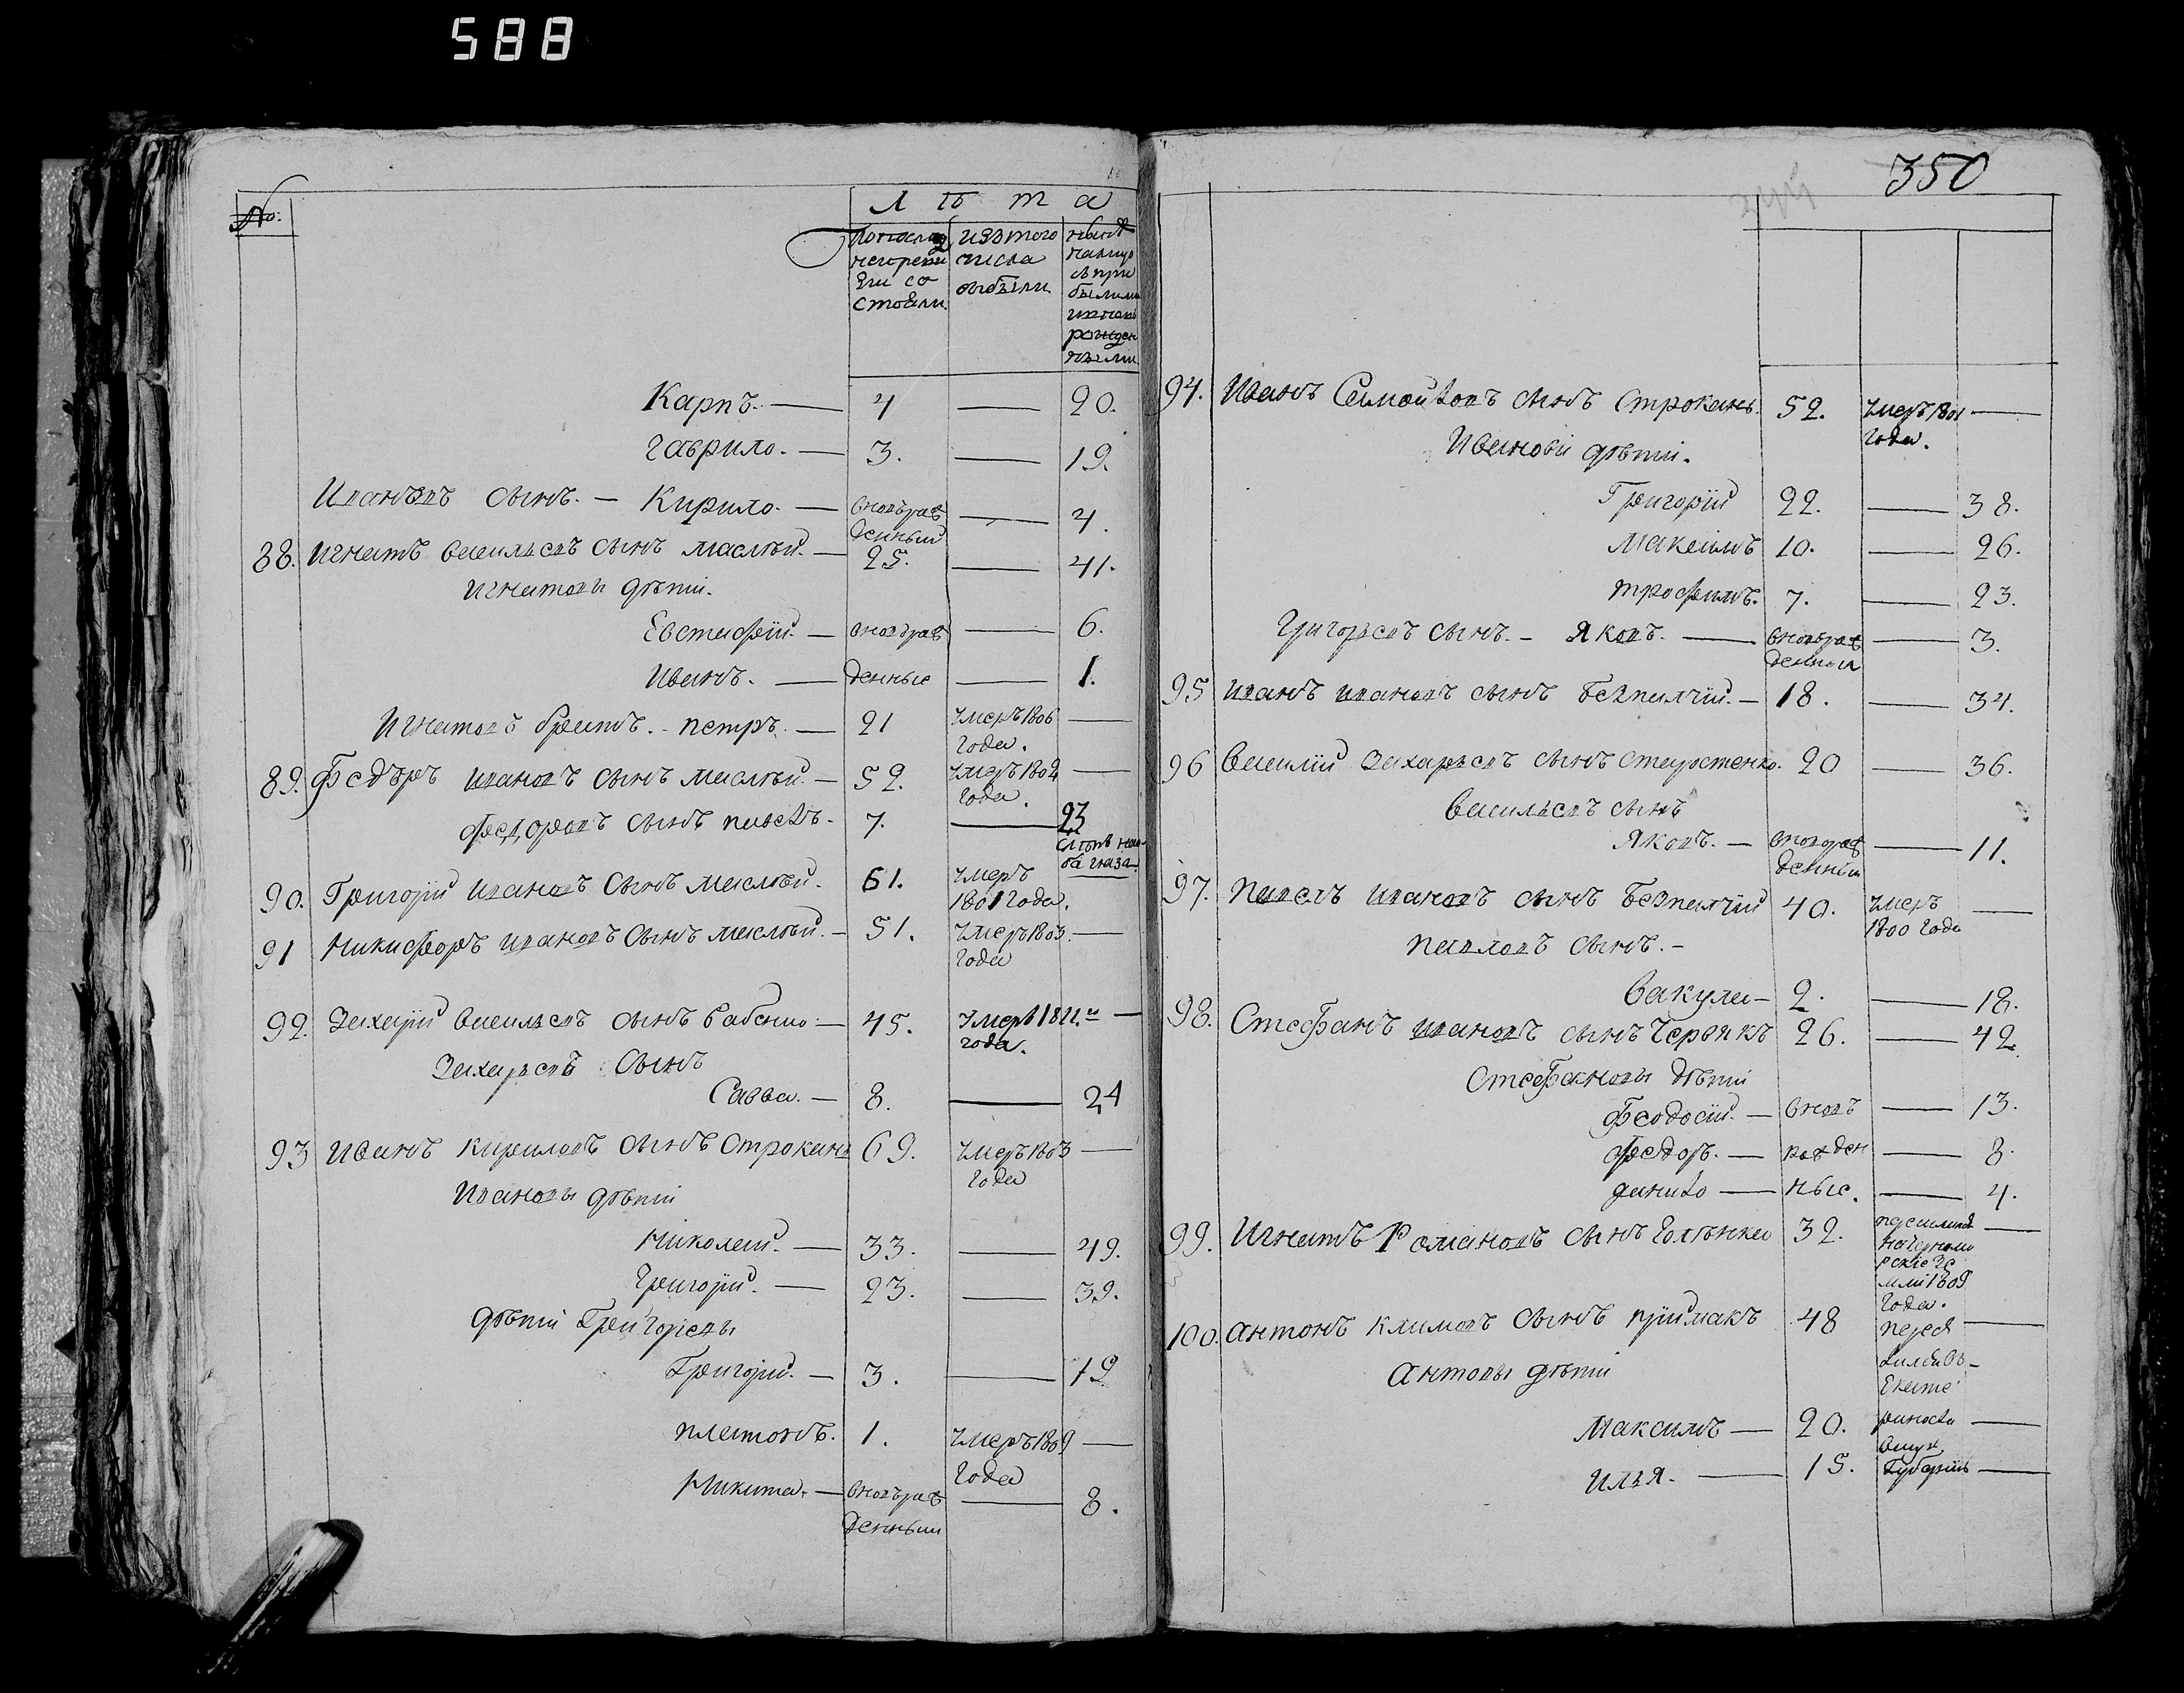 588
№
Лѣта
По послед ней реви зии со стояли
Изъ того числа выбыли
Нынѣ на лицо съ при былыми и вновь рожден ными
Карпъ. — 4 — 20.
Гаврило. — 3. — 19.
Ивановъ сынъ. — Кирило. — вновьраж денный — 4.
88. Игнатъ Васильевъ сынъ Маслѣй. — 25. — 41.
Игнатовы дѣти.
Евстафій. — вновьраж — 6.
Иванъ. — денные — 1.
Игнатовъ братъ. - Петръ. — 21 умеръ 1806 года. —
89. Федоръ Ивановъ сынъ Маслѣй. — 52. умеръ 1804 года. —
Федоровъ сынъ Павелъ. - 7. — 23 слѣпъ на оба глаза
90. Григорій Ивановъ сынъ Маслѣй. 61. умеръ 1801 года.
91 Никифоръ Ивановъ сынъ Маслѣй. — 51. умеръ 1803. года —
92. Захарій Васильевъ сынъ Бабенко — 45. умеръ 1811.го года. —
Захарьевъ сынъ
Савва. — 8. — 24
93 Иванъ Кириловъ сынъ Строкань 69. умеръ 1803 года —
Ивановы дѣти
Николай. — 33. — 49.
Григорій. — 23. — 39.
Дѣти Григорьевы
Григорій. — 3. — 19
Платонъ. 1. умеръ 1809 года —
Микита. — вновьраж денный — 8.
350
94. Иванъ Самойловъ сынъ Строкань. 52. умеръ 1801 года. —
Ивановы дѣти.
Григорій 22. — 38.
Максимъ 10. — 26.
Трофимъ. 7. — 23.
Григорьевъ сынъ. - Яковъ. — вновьраж денный — 3.
95 Иванъ Ивановъ сынъ Безпалчій. — 18. — 34.
96 Василій Захарьевъ сынъ Старостенко. 20 — 36.
Васильевъ сынъ
Яковъ. — вновораж денный — 11.
97. Павелъ Ивановъ сынъ Безпалчій 40. умеръ 1800 года —
Павловъ сынъ. -
Вакула — 2. — 18.
98. Стефанъ Ивановъ сынъ Червякъ 26. — 42.
Стефановы дѣти
Феодосій. — вновь — 13.
Федоръ. — рожден — 8.
Данило — ные. — 4.
99. Игнатъ Романовъ сынъ Голѣнка 32. на черномо рскіе зе мли 1809 года. —
100. Антонъ Климовъ сынъ Приймакъ 48 перев —
Антоновы дѣти
Екате
Максимъ — 20. риносла —
Илья. — 15. Губернію —